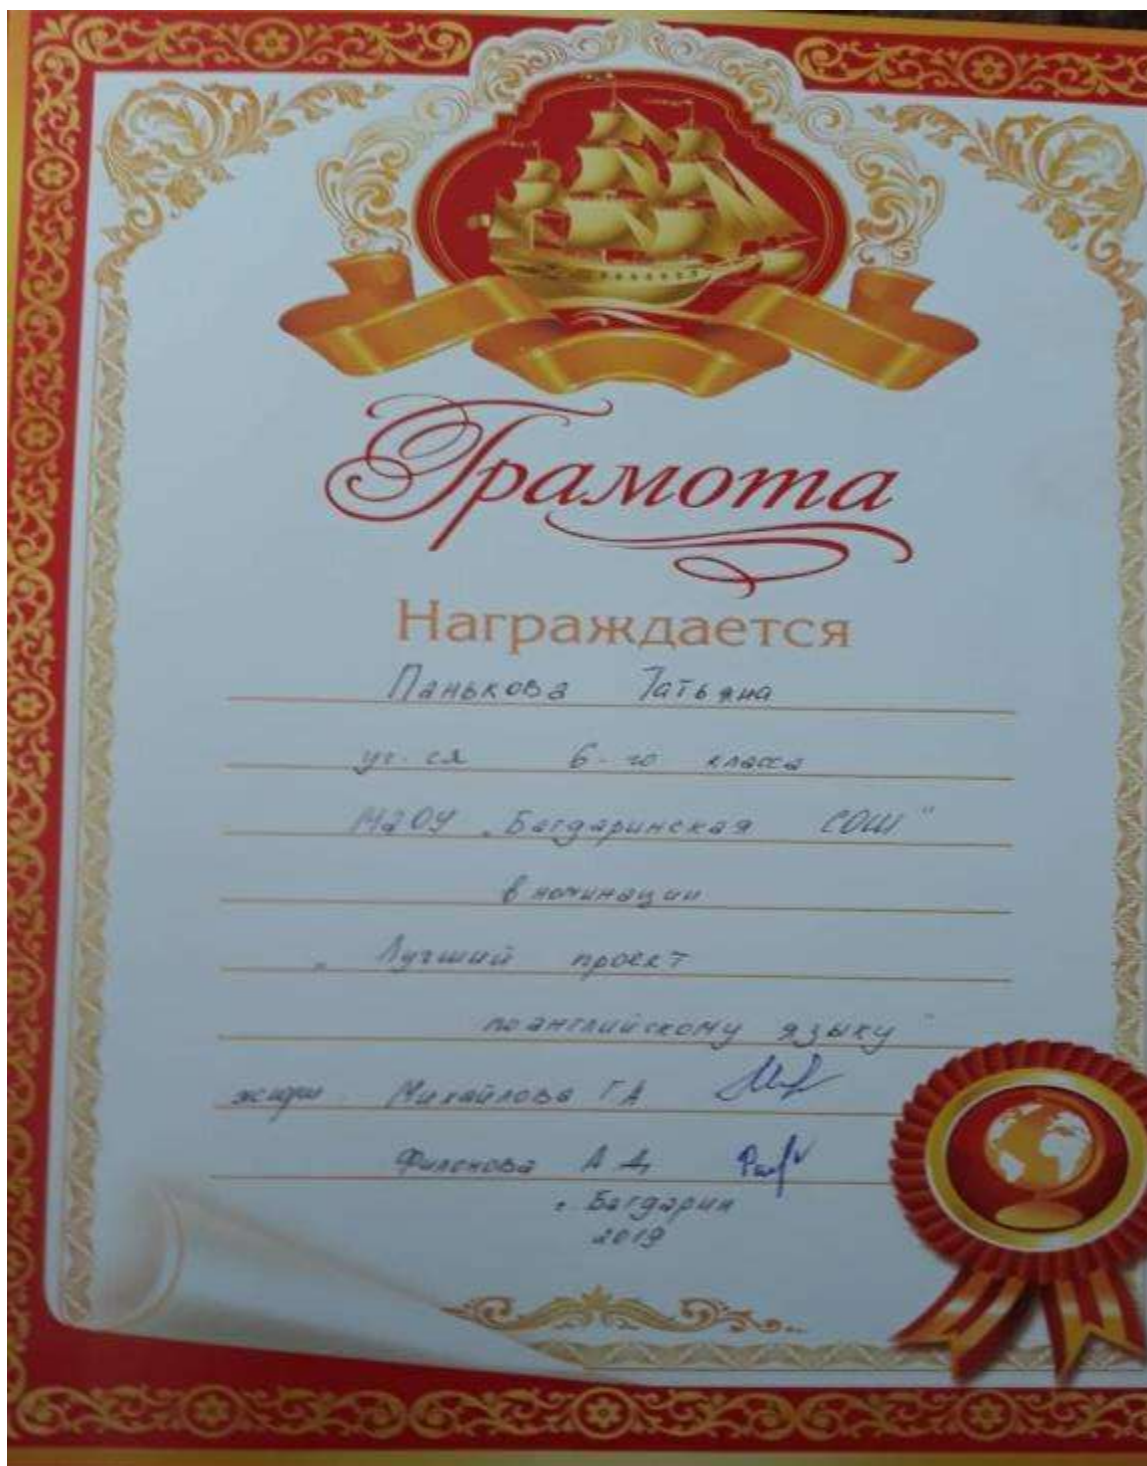 Грамота
Награждается
Панькова Татьяна
уч-ся 6-го класса
МАОУ „Багдаринская СОШ"
в номинации
„Лучший проект
по английскому языку"
жюри Михайлова Г А
Филонова А Д
с. Багдарин
2019